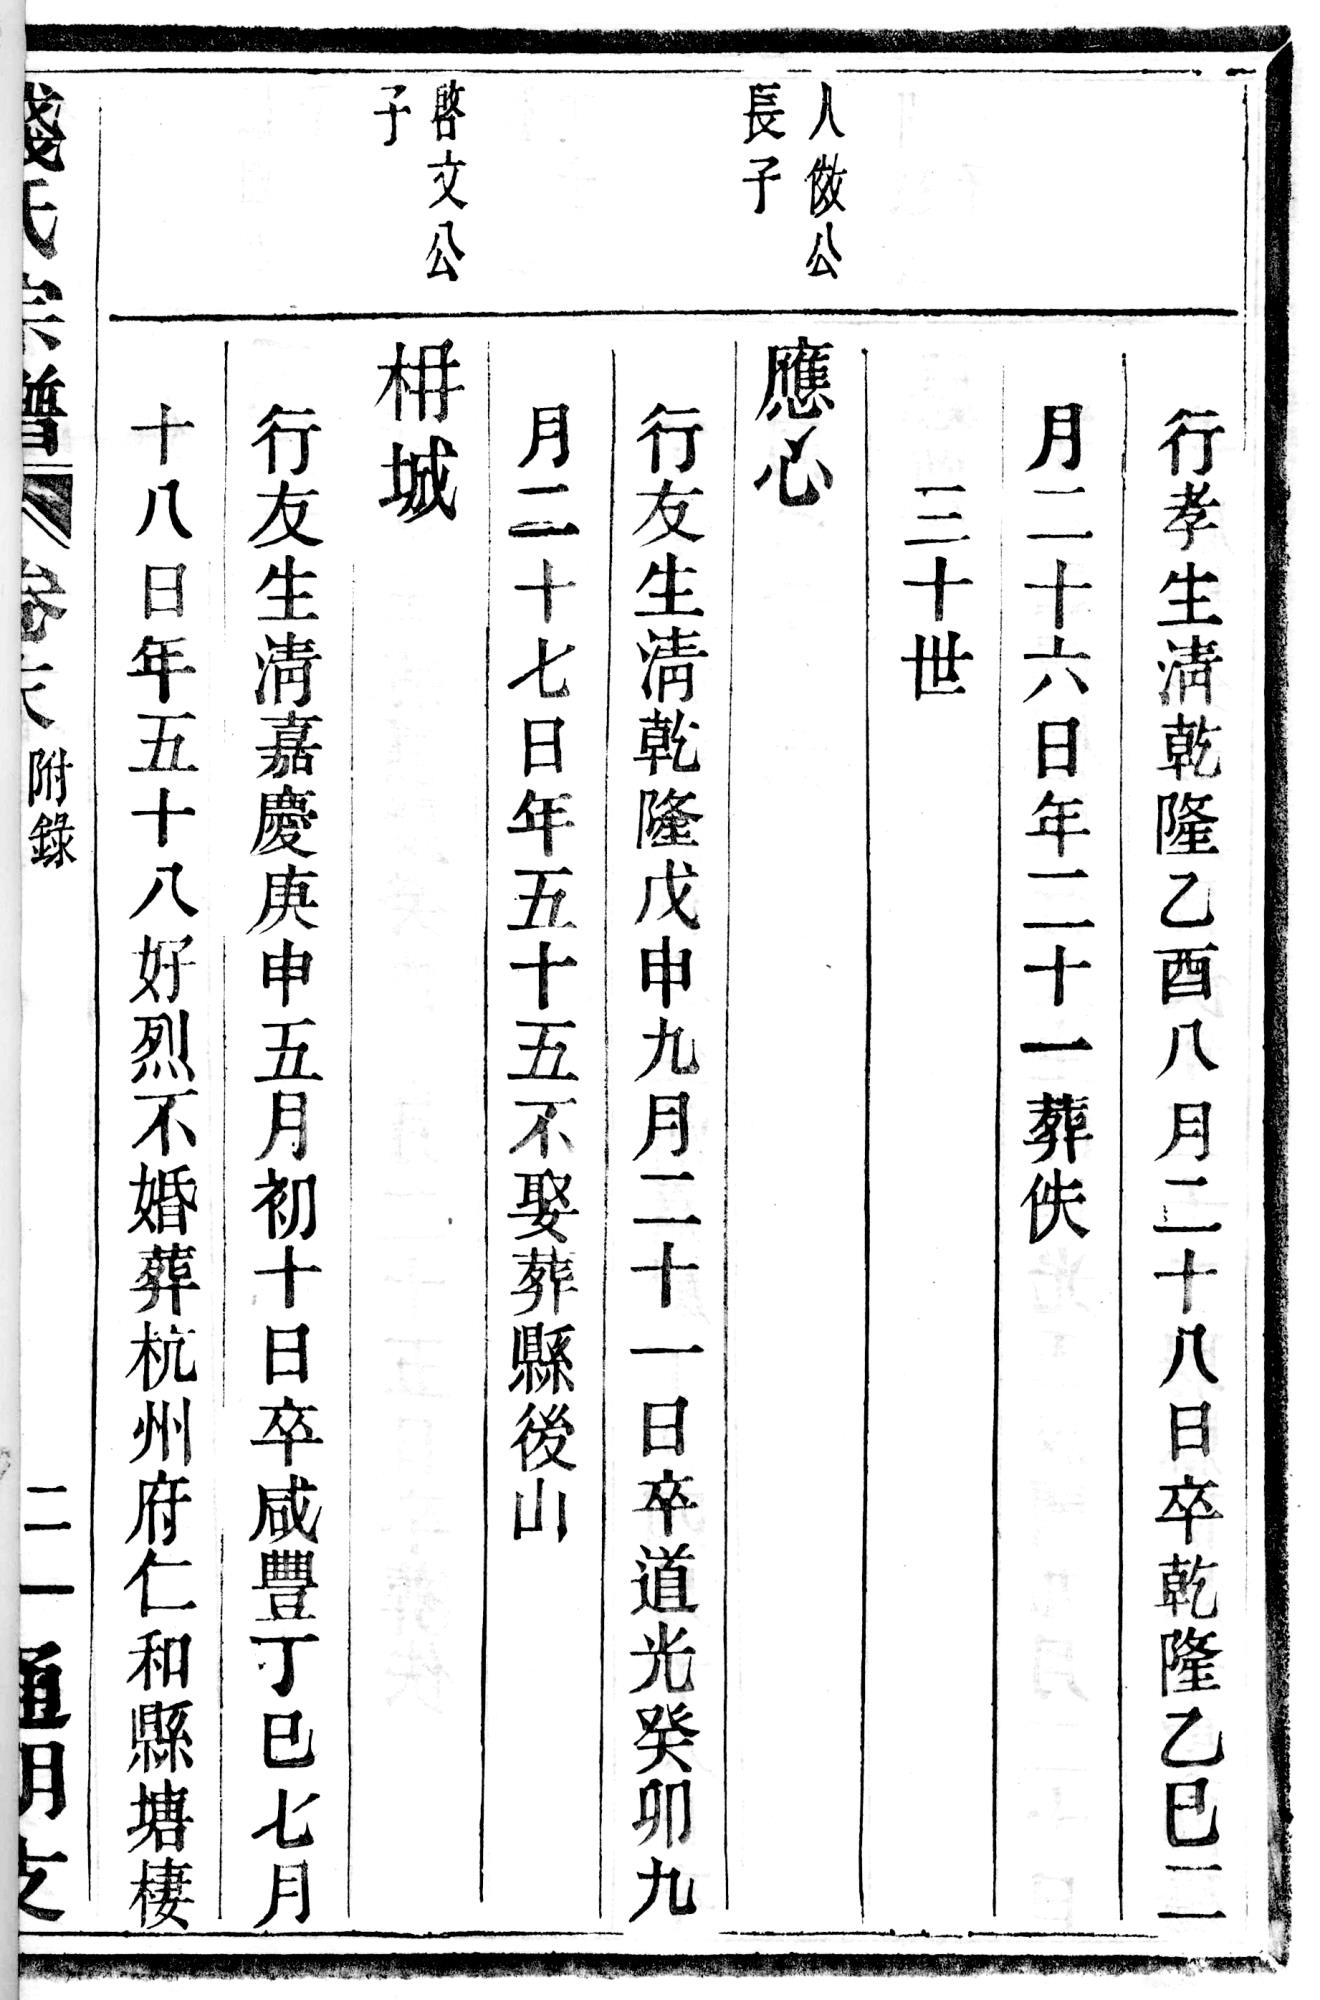 行孝生淸乾隆乙酉八月二十八日卒乾隆乙巳二
月二十六日年二十一葬佚
三十世
人倣公
長子
應心
行友生淸乾隆戊申九月二十一日卒道光癸卯九
月二十七日年五十五不娶葬縣後山
啓文公
子
枏城
行友生淸嘉慶庚申五月初十日卒咸豐丁巳七月
十八日年五十八好烈不婚葬杭州府仁和縣塘棲
錢氏宗譜
卷末
附錄
二一
通明支